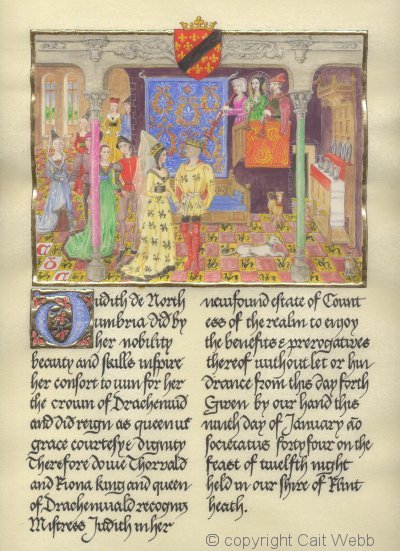 Judith de North
umbria did by
her nobility
beauty and skills inspire
her consort to win for her
the crown of Drachenwald
and did reign as queen wt
grace courtesy & dignity
Therefore do we Thorvald
and Fiona king and queen
of Drachenwald recogniz
Mistress Judith in her
newfound estate of Count
ess of the realm to enjoy
the benefits & prerogatives
thereof without let or hin
drance from this day forth
Given by our hand this
ninth day of January ao
societatus forty four on the
feast of twelfth night
held in our shire of Flint
heath.
© copyright Cait Webb